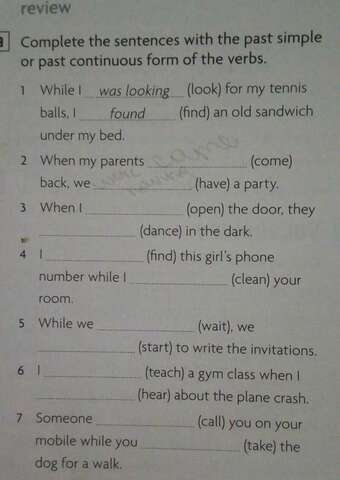 review
Complete the sentences with the past simple
or past continuous form of the verbs.
1 While I was looking (look) for my tennis
balls, I found (find) an old sandwich
under my bed.
2 When my parents came (come)
back, we were (have) a party.
3 When I (open) the door, they
(dance) in the dark.
4 I (find) this girl's phone
number while I (clean) your
room.
5 While we (wait), we
(start) to write the invitations.
6 I (teach) a gym class when I
(hear) about the plane crash.
7 Someone (call) you on your
mobile while you (take) the
dog for a walk.